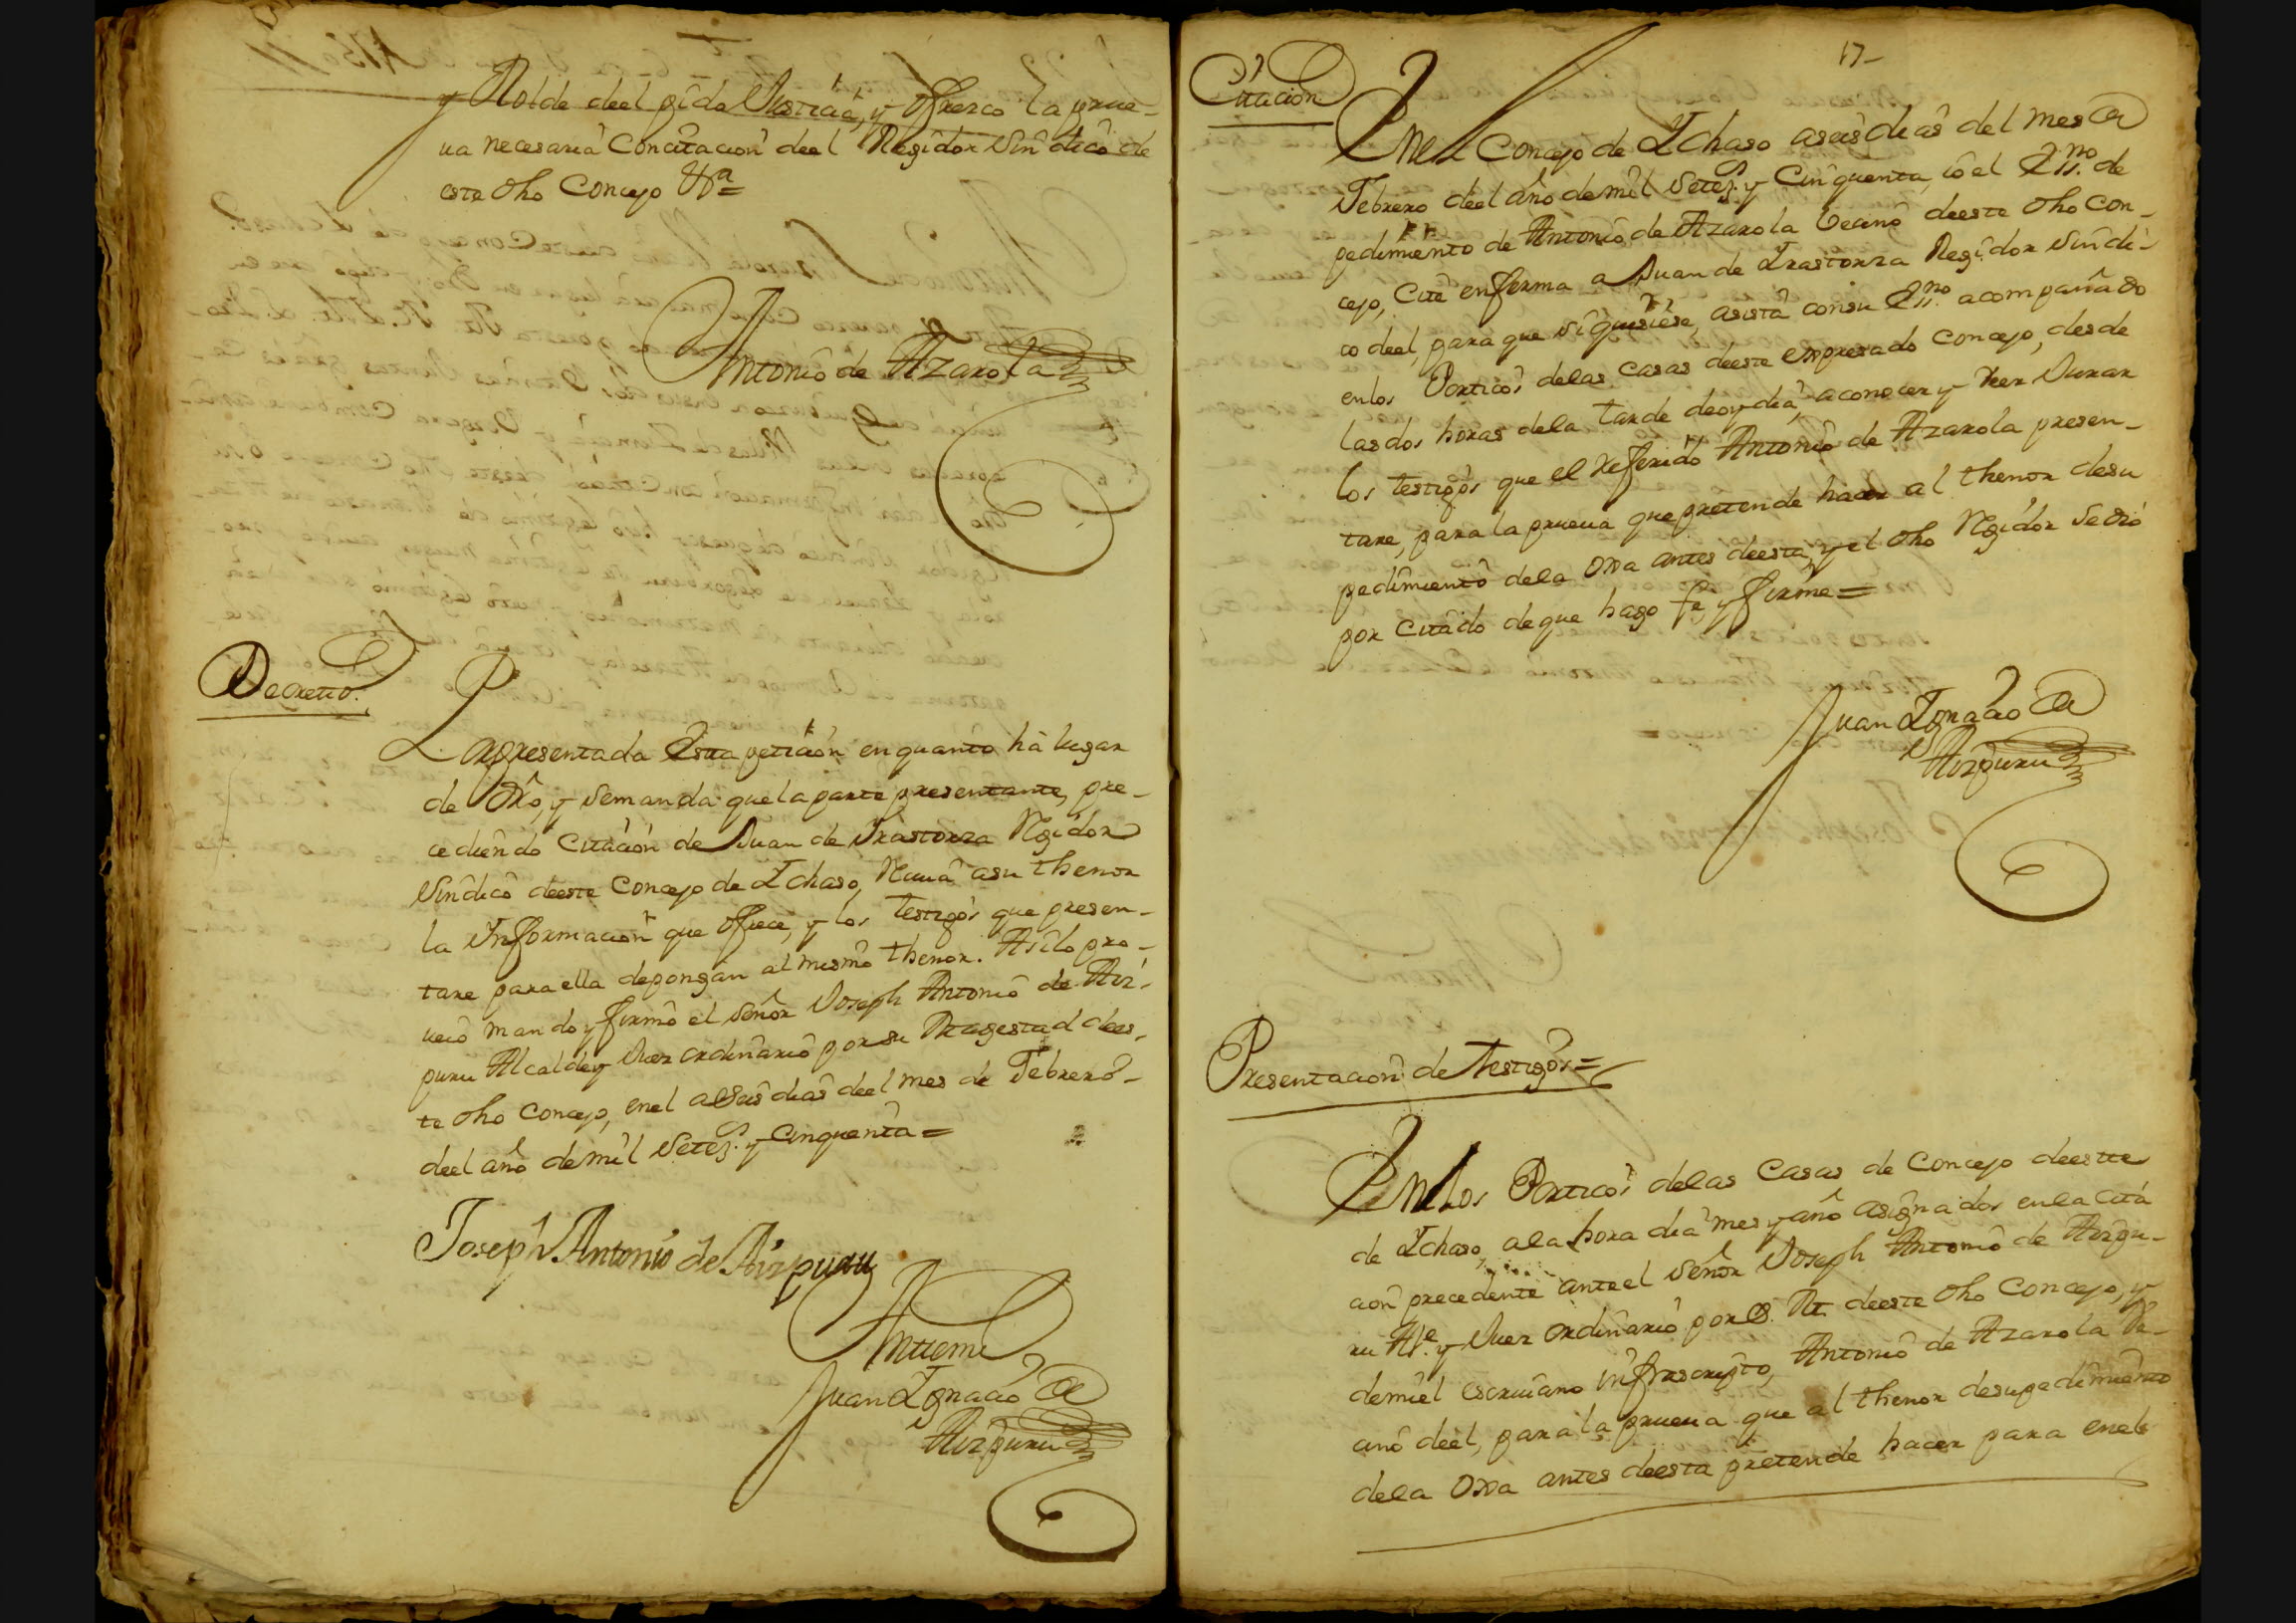 y Rolde deel pido Justicia, y ofrezco la prue-
ua necesaria Concitacion deel Regidor Sindico de
este dho Concejo &ª=
Antonio de Azarola
Decreto.
Por presentada Esta peticion enquanto hà lugar
de dro, y Semanda quela parte presentante, pre-
cediendo Citacion de Juan de Irastorza Rgidor
Sindico deeste Concejo de Ichaso, Reciua asu thenor
la Informacion que ofrece, y los Testigos que presen-
tare para ella depongan al mismo thenor. Asilo pro-
ueió mando y firmó el Señor Joseph Antonio de Aiz-
puru Alcalde y Juez ordinario por su Magestad dees-
te dho Concejo, enel aSeis dias deel mes de Febrero-
deel año demil Setezs. y Cinquenta=
Joseph Antonio de Aizpuru
Antemi
Juan Ignacio de
Aizpuru
17-
Citacion
Enel Concejo de Ichaso aseis dias del mes de
Febrero deel año demil Setezs. y Cinquenta, io el Essno. de
pedimiento de Antonio de Azarola Vecino deeste dho Con-
cejo, Cité enforma a Juan de Irastorza Regidor Sindi-
co deel, para que si quisiere, asista consu Essno. acompañado
enlos Porticos delas Casas deeste expresado Concejo, desde
lasdos horas dela tarde deoydia, aconocer y veer Jurar
los testigos que el referido Antonio de Azarola presen-
tare, para la prueua que pretende hacer al thenor desu
pedimiento dela oxa antes deesta, y el dho Rgidor Sedió
por Citado deque hago fe y firme=
Juan Ignacio de
Aizpuru
Presentacion de Testigos=
Enlos Porticos delas Casas de Concejo deeste
de Ichaso, ala hora dia mes y año asignados enla Cita
cion precedente anteel Señor Joseph Antonio de Aizpu-
ru Alce. y Juez ordinario por S. M. deeste dho Concejo, y
demi el escriuano infrascripto, Antonio de Azarola Ve-
cino deel, para la prueua que al thenor desupedimiento
dela oxa antes deesta pretende hacer para enel